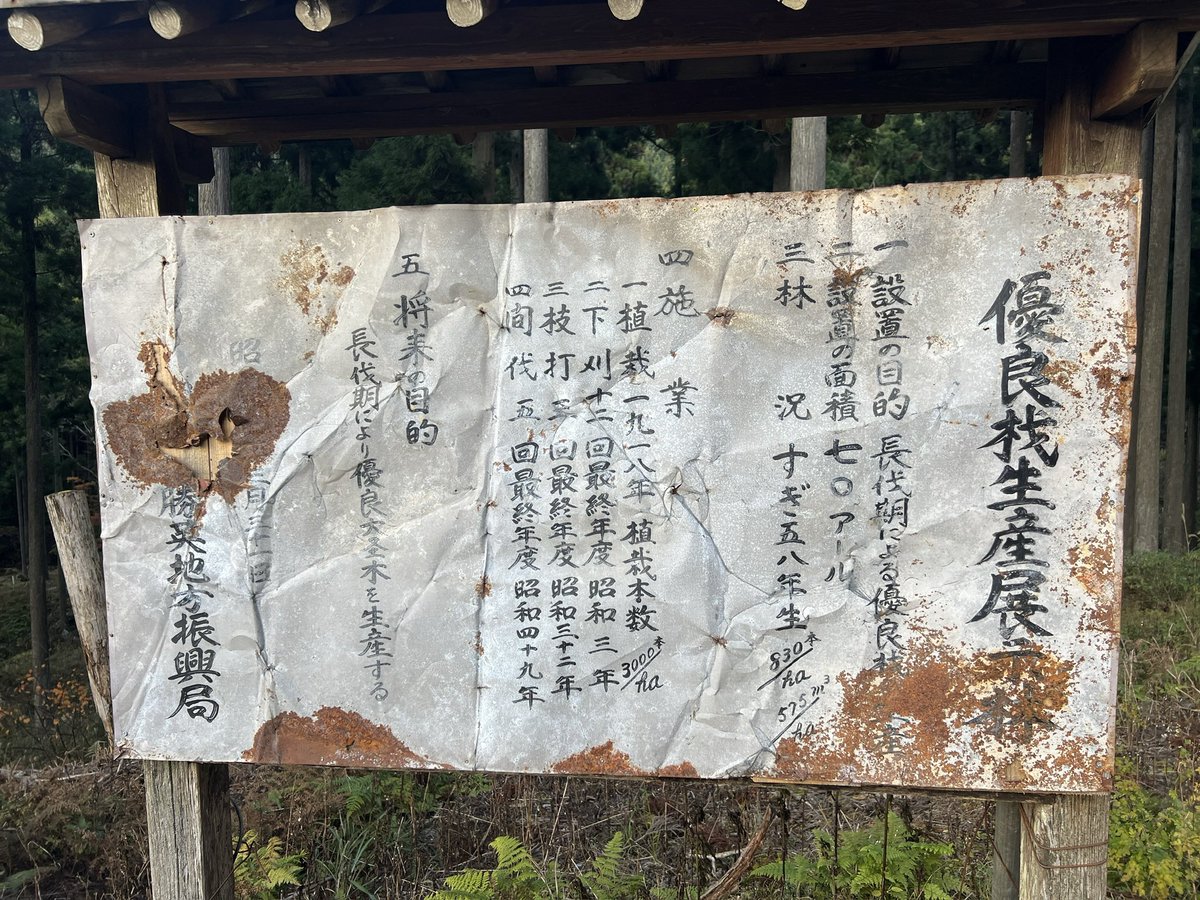 優良材生産展示林
一 設置の目的 長伐期による優良材生産
二 設置の面積 七〇アール
三 林況 すぎ五八年生 830本/ha 575m³/ha
四 施業
一 植栽 一九一八年 植栽本数 3000本/ha
二 下刈 十二回 最終年度 昭和三年
三 枝打 三回 最終年度 昭和三十二年
四 间伐 五回 最終年度 昭和四十九年
五 将来の目的
長伐期により優良大径木を生産する
昭 月三十一日
勝英地方振興局